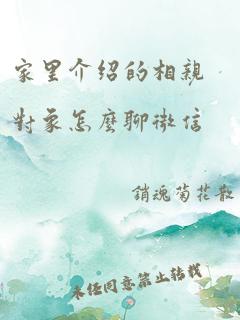 家里介绍的相親
對象怎麼聊微信
銷魂菊花散
未经同意禁止转载